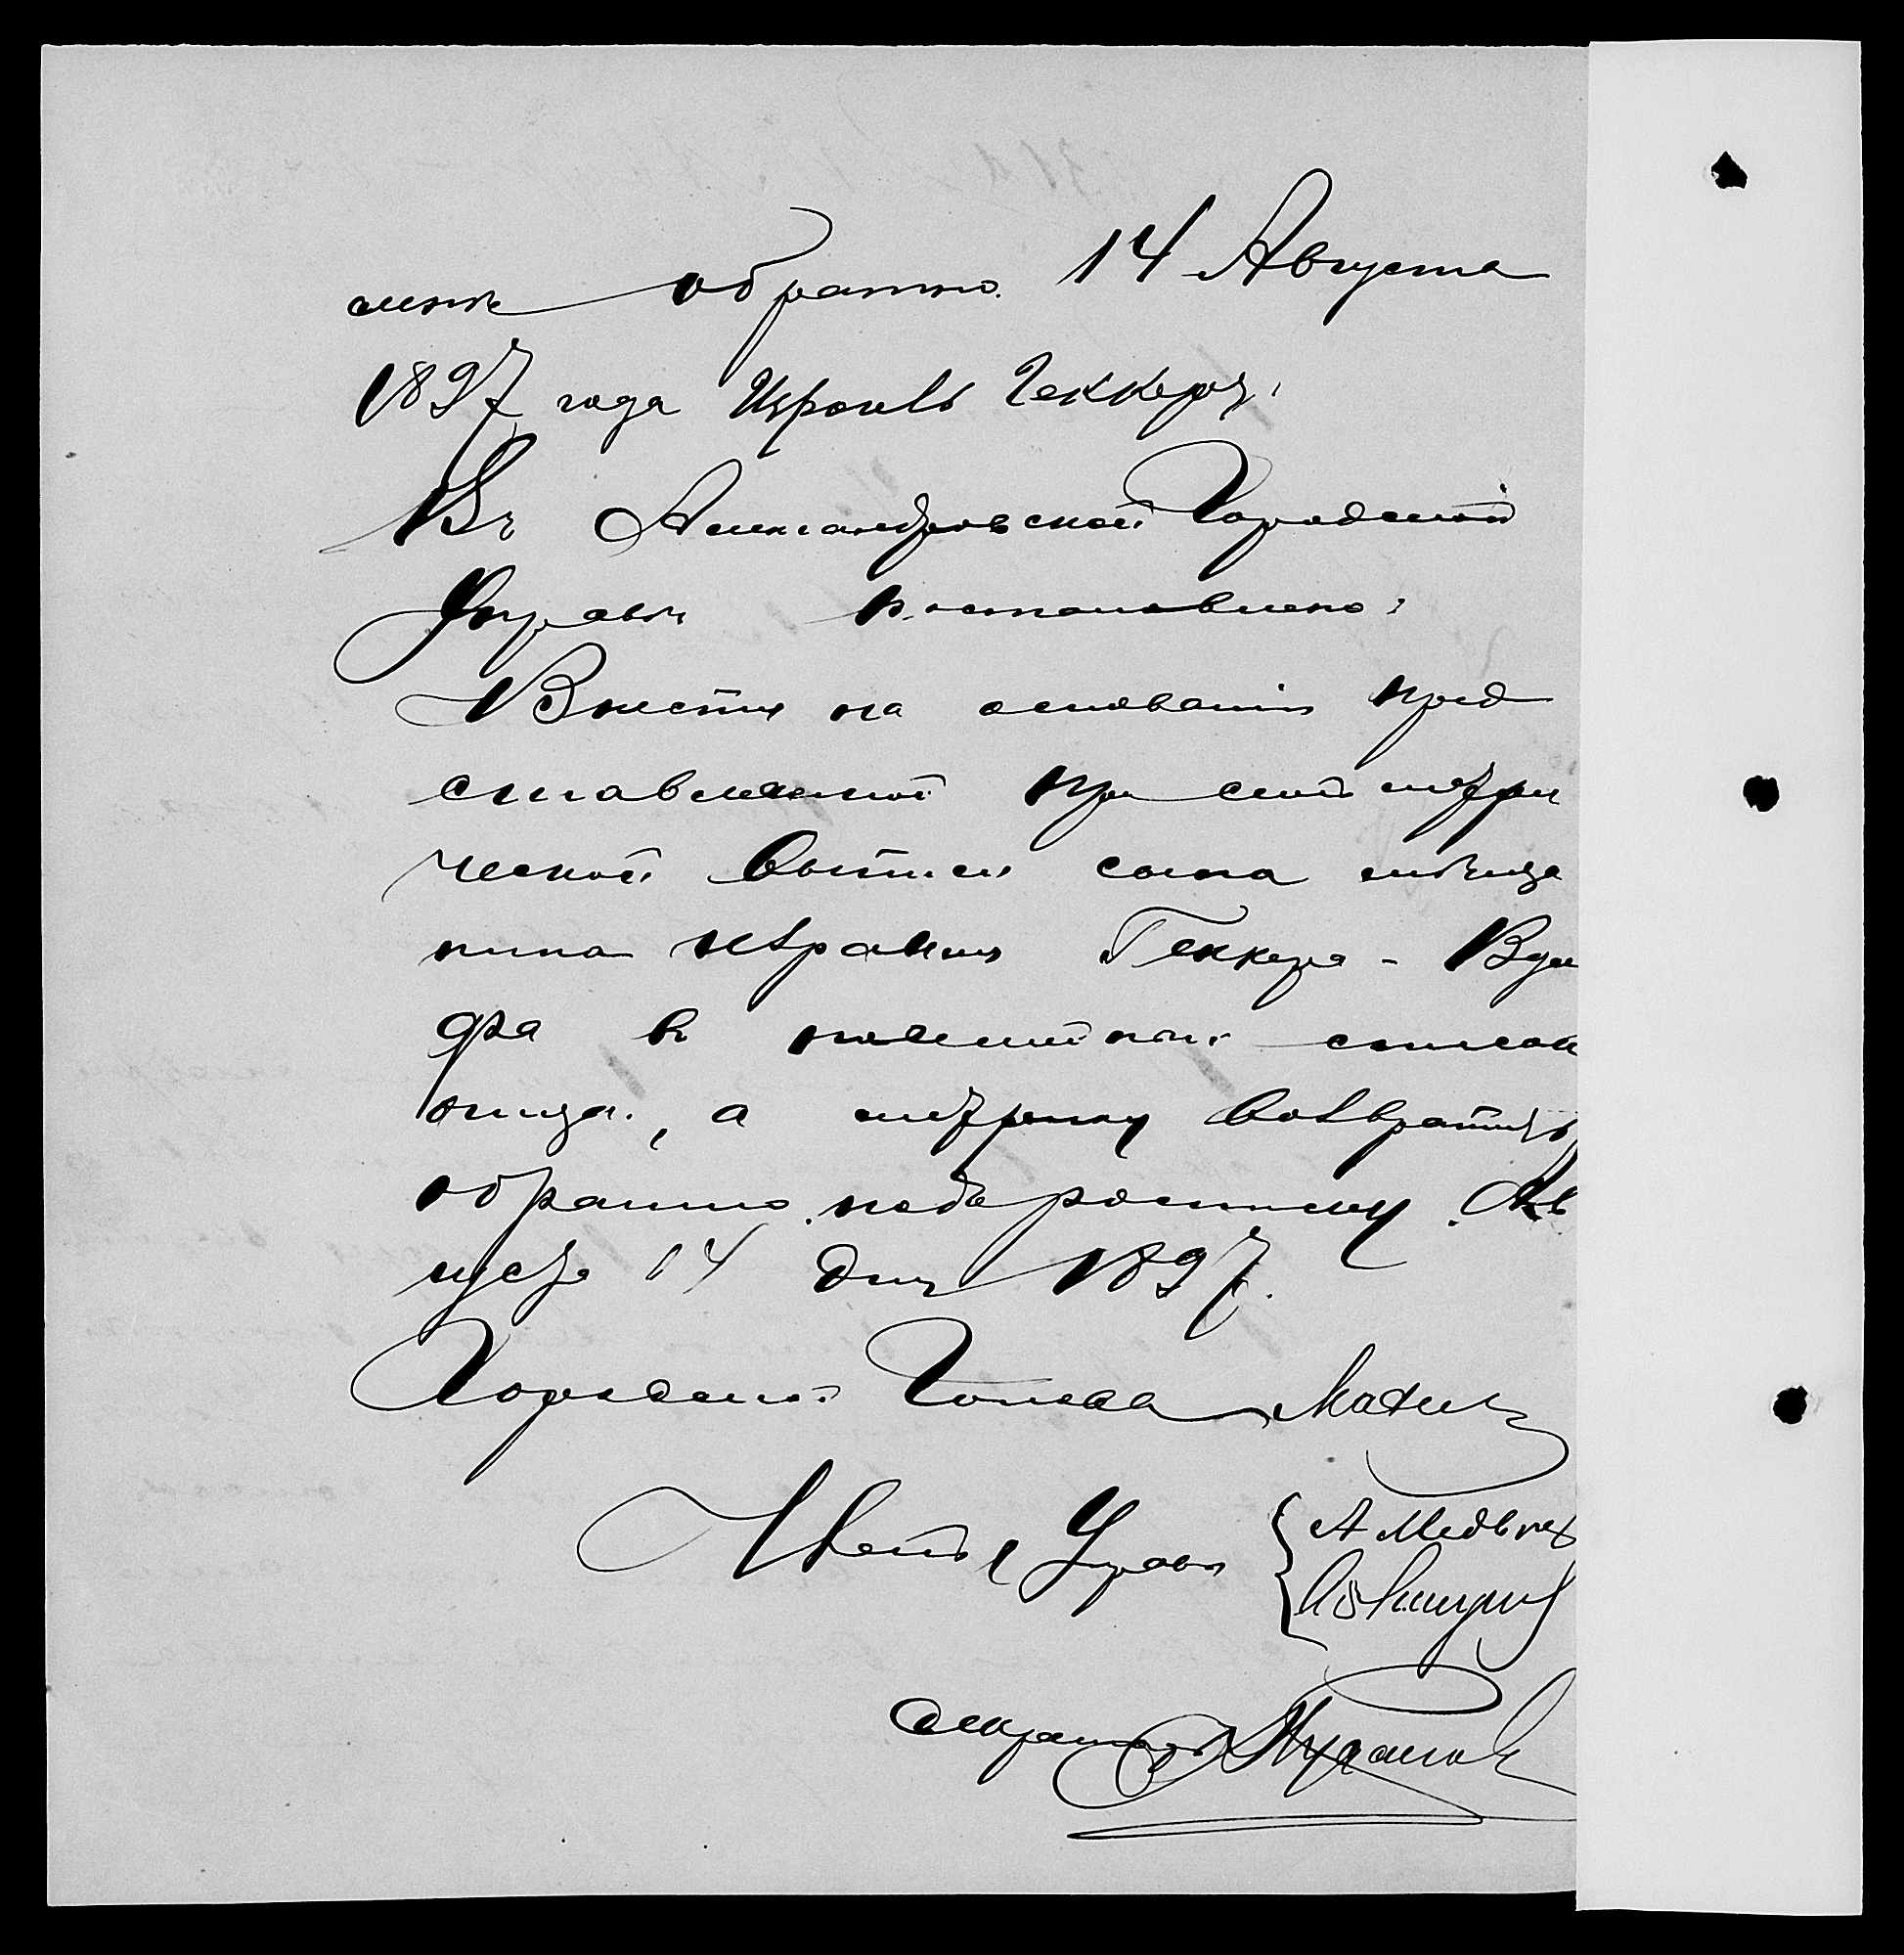 мнѣ обратно. 14 Августа
1897 года Израиль Геккеръ.
Въ Александровской Городской
Управѣ постановлено:
Внести на основаніи пред
ставленной при семъ метри
ческой выписи сына мѣща
нина Израиля Геккера - Вуль
фа въ посемейный списокъ
отца, а метрику возвратить
обратно подъ росписку. Ав
густа 14 дня 1897.
Городской Голова
Члены Управы А Медвѣд
Секретарь